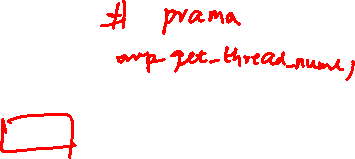 # prama
omp_get_thread_num;